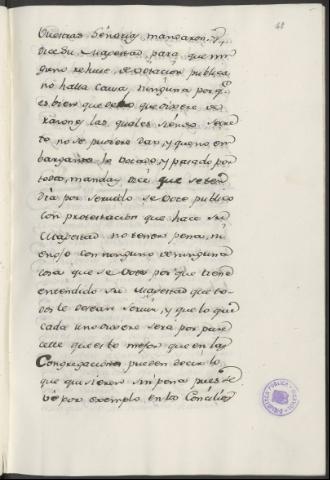 68
Vuestras Señorias mandaron, y
dice Su Magestad, para que nin
guno rehuse de Votacion publica
no halla causa, ninguna porq.e
es bien que de lo que dixere de
razones las quales siendo secre
to no se pudiere dar, y que no em
bargante lo Votado, y pasado por
todo, manda y dice que se ten
dia por servido se Vote publico
con protestacion que hace Su
Magestad no tener pena, ni
enojo con ninguno de ninguna
cosa que se Vote por que tiene
entendido Su Magestad que to
dos le desean servir, y que lo que
cada uno dixere sera por pare
cerle que es lo mejor que en las
Congregaciones pueden decir lo
que quisieren sin pena pues se
vé por exemplo en los Concilios
BIBLIOTECA PUBLICA